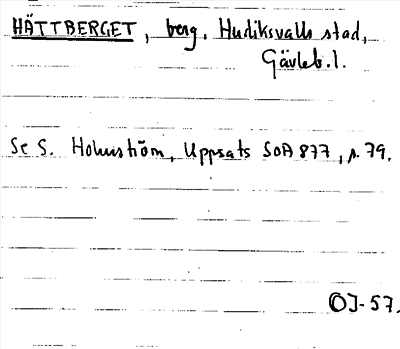 HÄTTBERGET, berg, Hudiksvalls stad,
Gävleb. l.
Se S. Holmström, Uppsats SOA 877, s. 79.
OJ-57.